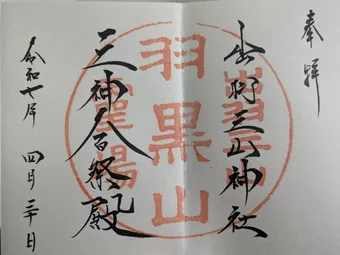 奉拝
出羽三山神社
羽黒山
三神合祭殿
令和七年 四月三十日